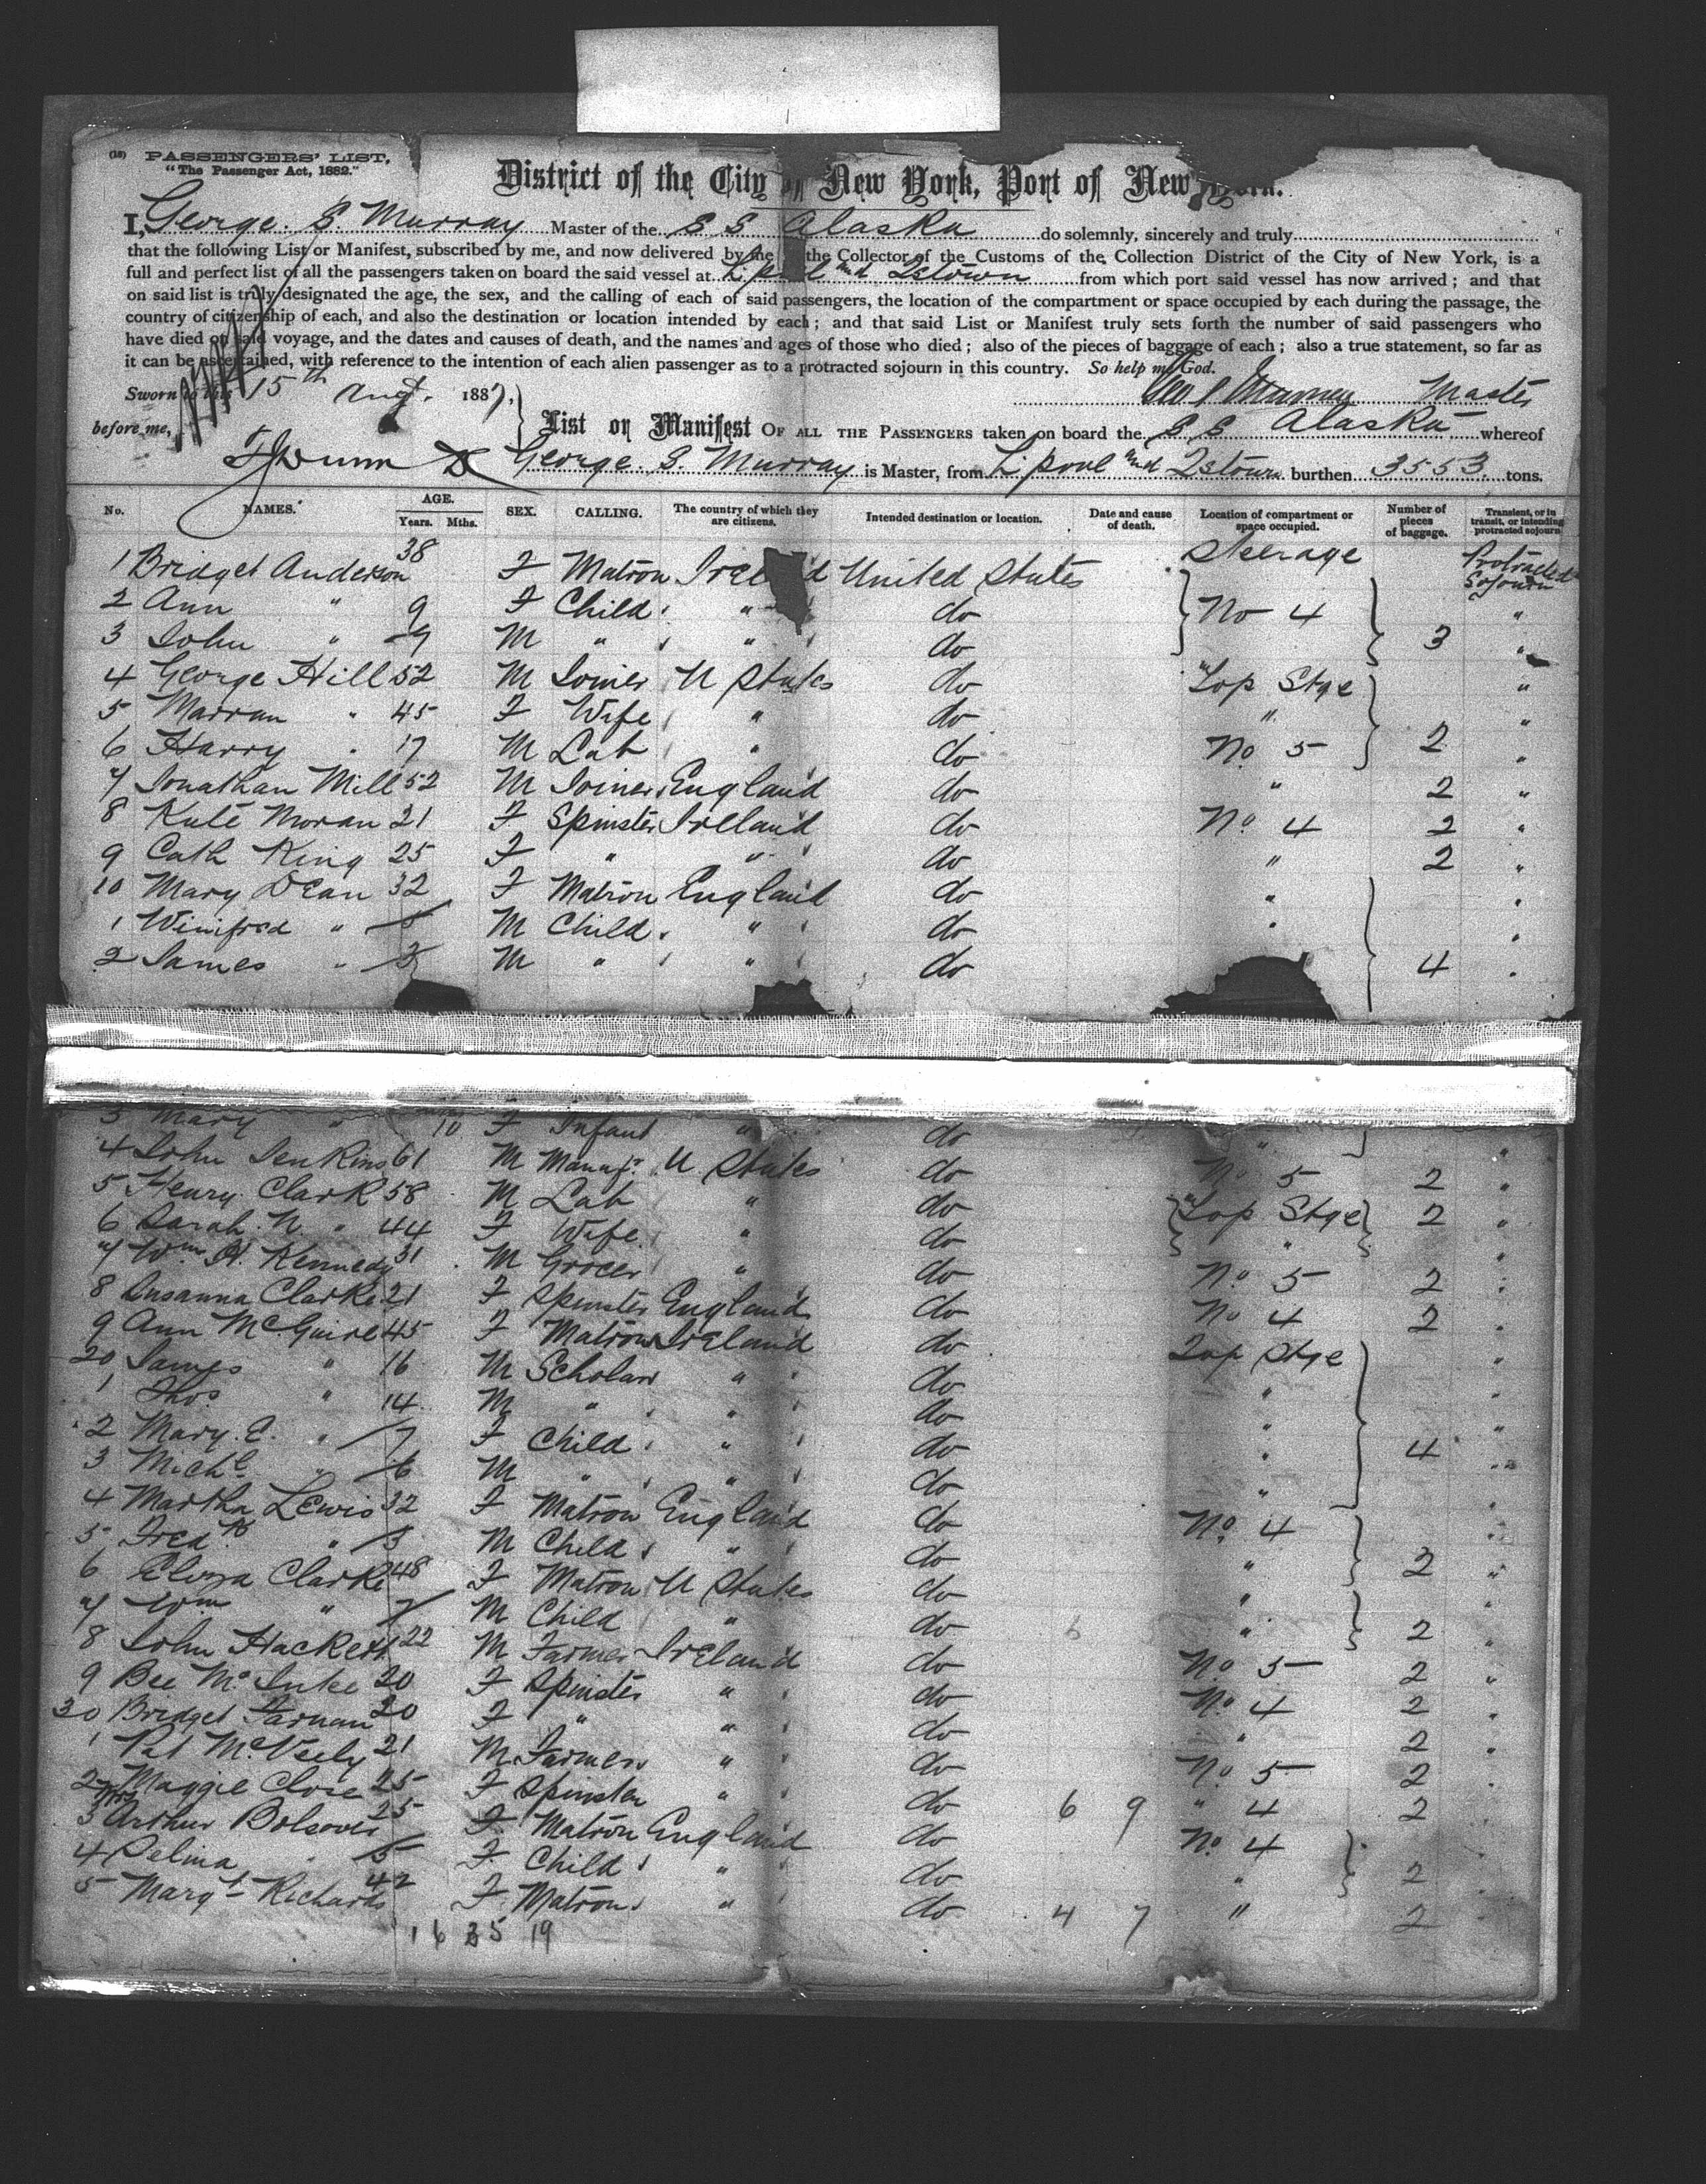 (18) PASSENGERS' LIST,
"The Passenger Act, 1882."
District of the City of New York, Port of New York.
I, George. S. Murray Master of the S S Alaska do solemnly, sincerely and truly
that the following List or Manifest, subscribed by me, and now delivered by me the Collector of the Customs of the Collection District of the City of New York, is a
full and perfect list of all the passengers taken on board the said vessel at L'pool and Qstown from which port said vessel has now arrived; and that
on said list is truly designated the age, the sex, and the calling of each of said passengers, the location of the compartment or space occupied by each during the passage, the
country of citizenship of each, and also the destination or location intended by each; and that said List or Manifest truly sets forth the number of said passengers who
have died on said voyage, and the dates and causes of death, and the names and ages of those who died; also of the pieces of baggage of each; also a true statement, so far as
it can be ascertained, with reference to the intention of each alien passenger as to a protracted sojourn in this country. So help me God.
Sworn to this 15th Augt. 1887, Geo S Murray Master
before me, List or Manifest OF ALL THE PASSENGERS taken on board the S S Alaska whereof
George. S. Murray is Master, from L'pool and Qstown burthen 3553 tons.
No. NAMES. AGE. Years. Mths. SEX. CALLING. The country of which they are citizens. Intended destination or location. Date and cause of death. Location of compartment or space occupied. Number of pieces of baggage. Transient, or in transit, or intending protracted sojourn
1 Bridget Anderson 38 F Matron Ireland United States Steerage Protracted Sojourn
2 Ann " 9 F Child " do No 4 "
3 John " 9 M " " do 3 "
4 George Hill 52 M Joiner U States do Top Stge "
5 Marran " 45 F Wife " do " "
6 Harry " 17 M Lab " do No 5 2 "
7 Jonathan Mill 52 M Joiner England do " 2 "
8 Kate Moran 21 F Spinster Ireland do No 4 2 "
9 Cath King 25 F " " do " 2 "
10 Mary Dean 32 F Matron England do " "
1 Winifred " 5 M Child " do " "
2 James " 3 M " " do 4 "
3 Mary " 10 F Infant " do " "
4 John Jenkins 61 M Manafr U States do No 5 2 "
5 Henry Clark 58 M Lab " do Top Stge 2 "
6 Sarah N. " 44 F Wife " do " "
7 Wm H. Kennedy 31 M Grocer " do No 5 2 "
8 Susanna Clarke 21 F Spinster England do No 4 2 "
9 Ann McGuire 45 F Matron Ireland do Top Stge "
20 James " 16 M Scholar " do " "
1 Thos " 14 M " " do " "
2 Mary E. " 7 F Child " do " 4 "
3 Michl " 6 M " " do " "
4 Martha Lewis 32 F Matron England do No 4 "
5 Fredk " 3 M Child " do " 2 "
6 Eliza Clarke 48 F Matron U States do " "
7 Wm " 7 M Child " do " 2 "
8 John Hackett 22 M Farmer Ireland do No 5 2 "
9 Bee 20 F Spinster " do No 4 2 "
30 Bridget Farnan 20 F " " do " 2 "
1 Pat McVeely 21 M Farmer " do No 5 2 "
2 Maggie Close 25 F Spinster " do 6 9 " 4 2
3 Mrs Arthur Bolsover 25 F Matron England do No 4
4 Selina " 5 F Child " do " 2
5 Margt Richards 42 F Matron " do 4 7 " 2